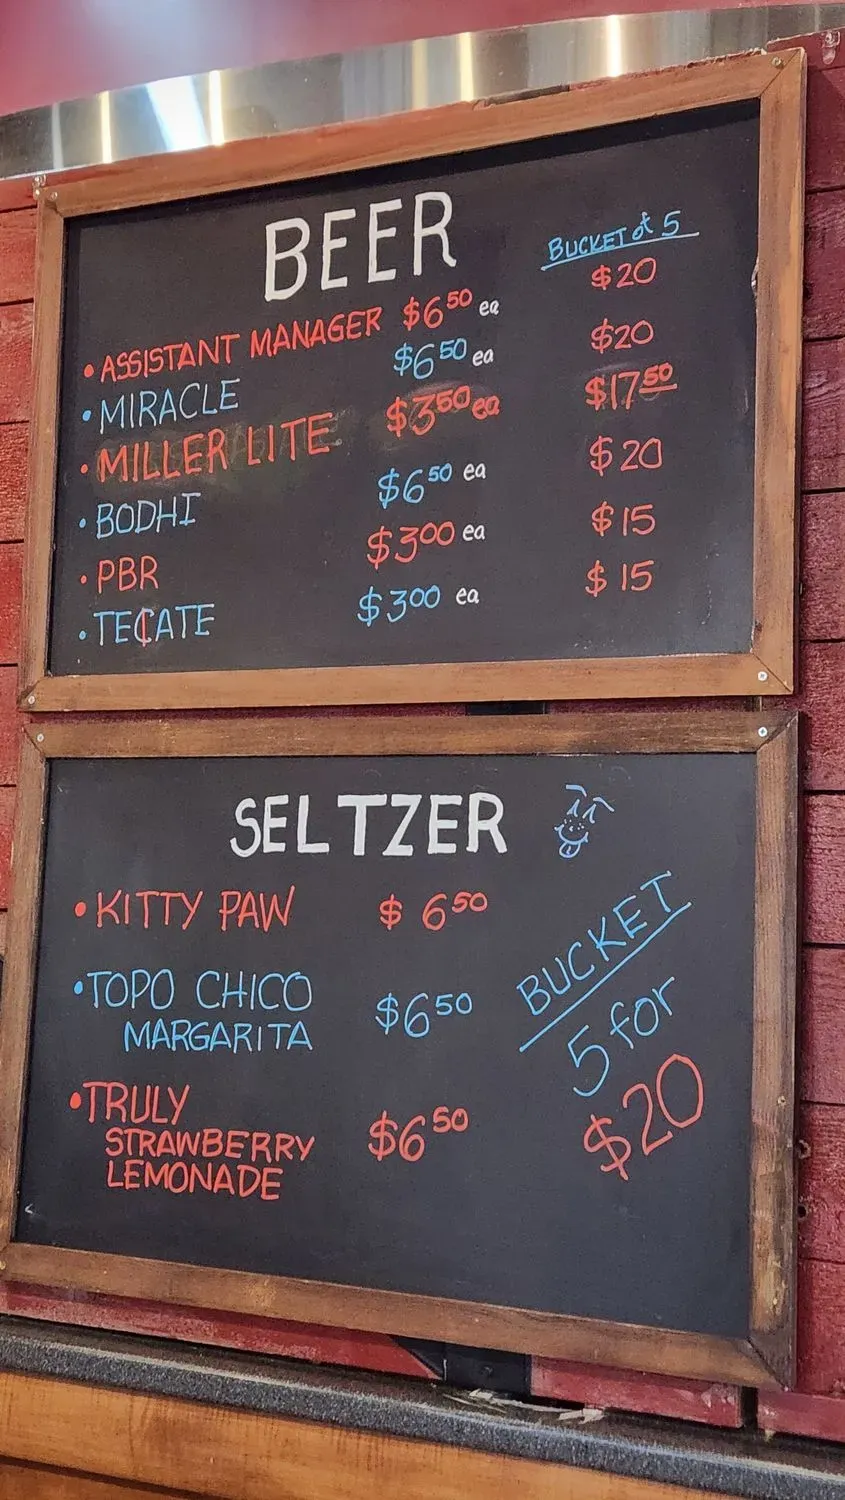 BEER
BUCKET of 5
• ASSISTANT MANAGER $6⁵⁰ ea $20
• MIRACLE $6⁵⁰ ea $20
• MILLER LITE $3⁵⁰ ea $17⁵⁰
• BODHI $6⁵⁰ ea $20
• PBR $3⁰⁰ ea $15
• TECATE $3⁰⁰ ea $15
SELTZER
• KITTY PAW $6⁵⁰
• TOPO CHICO
MARGARITA $6⁵⁰
• TRULY
STRAWBERRY
LEMONADE $6⁵⁰
BUCKET
5 for
$20